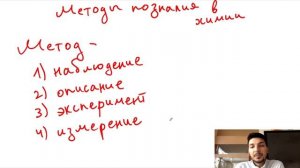 Методы познания в
химии
Метод -
1) наблюдение
2) описание
3) эксперимент
4) измерение